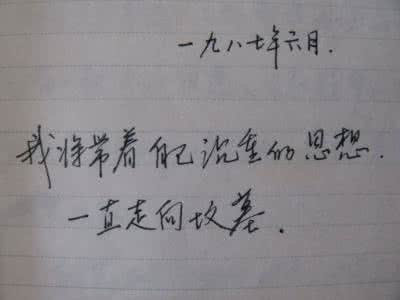 一九八七年六月.
我将带着自己沉重的思想.
一直走向坟墓.